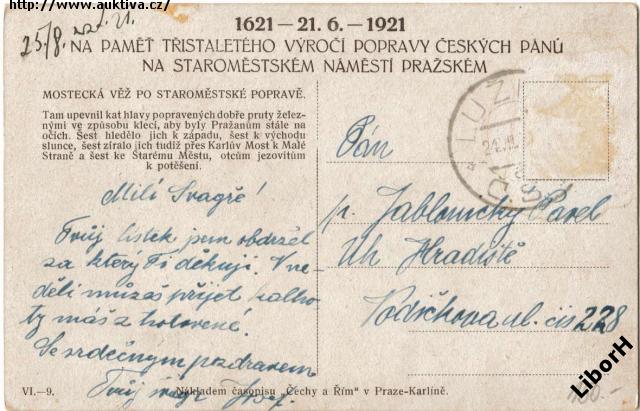 http://www.auktiva.cz/
25/8.
1621 — 21. 6. — 1921
NA PAMĚŤ TŘISTALETÉHO VÝROČÍ POPRAVY ČESKÝCH PÁNŮ
NA STAROMĚSTSKÉM NÁMĚSTÍ PRAŽSKÉM
MOSTECKÁ VĚŽ PO STAROMĚSTSKÉ POPRAVĚ.
Tam upevnil kat hlavy popravených dobře pruty želez-
nými ve způsobu klecí, aby byly Pražanům stále na
očích. Šest hledělo jich k západu, šest k východu
slunce, šest zíralo jich tudíž přes Karlův Most k Malé
Straně a šest ke Starému Městu, otcům jezovitům
k potěšení.
Milí Svagře!
Tvůj lístek jsem obdržel
za který Ti děkuji. V ne-
děli můzaš přijet kalho-
ty máš z hotovené.
Se srdečnym pozdravem
Tvůj
Pán
p. Jablonický Pavel
Uh Hradiště
Vodičkova ul. čís 228
VI.—9.
Nákladem časopisu „Čechy a Řím“ v Praze-Karlíně.
LiborH